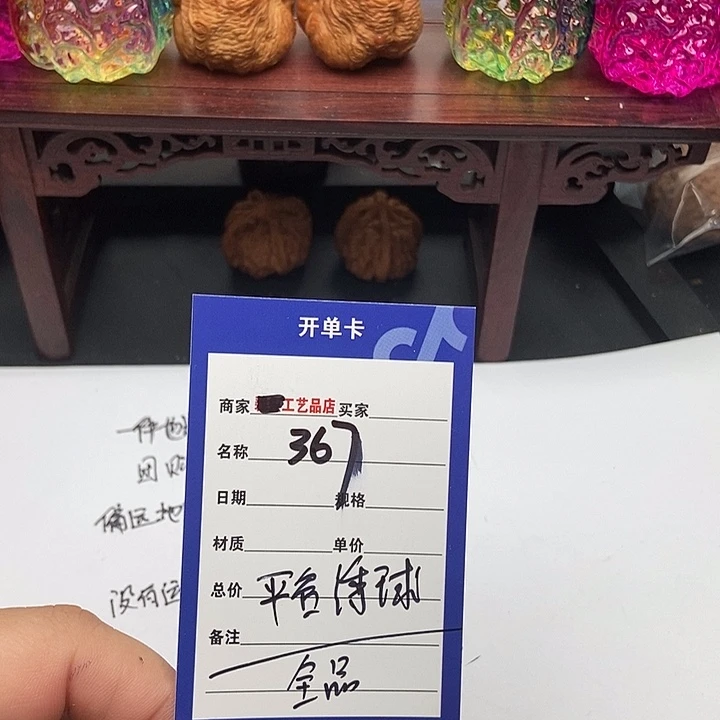 开单卡
商家 工艺品店 买家
名称 367
日期 规格
材质 单价
总价 平谷薄球
备注
全品
一件也
因
偏远地
没有运